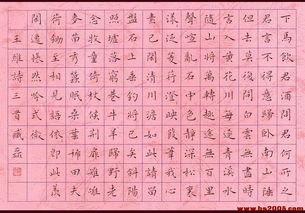 下馬飲君酒問君何所之
君言不得意歸臥南山陲
但去莫復問白雲無盡時
言入黃花川每逐青溪水
隨山將萬轉趣途無百里
聲喧亂石中色靜深松裏
漾漾泛菱荇澄澄映葭葦我心
素已閒清川澹如此請留
盤石上垂釣將已矣斜陽
照墟落窮巷牛羊歸野老
念牧童倚杖候荊扉雉雊
麥苗秀蠶眠桑葉稀田夫
荷鋤至相見語依依即此羨
閒逸悵然吟式微
王維詩三首
www.bs2005.com